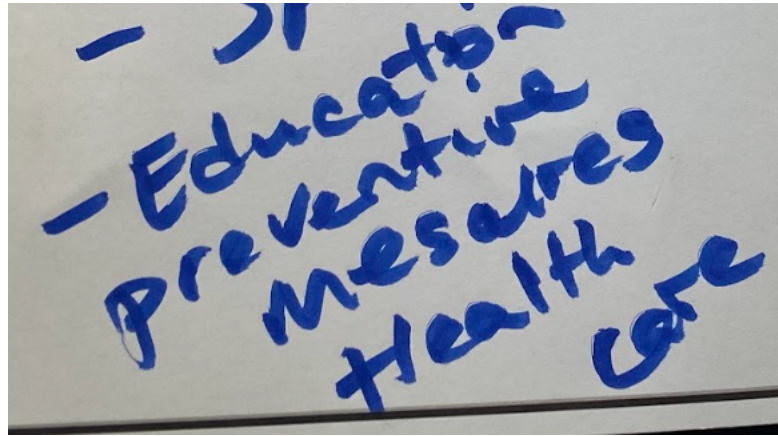 - Education
preventive
Mesaures
Health care